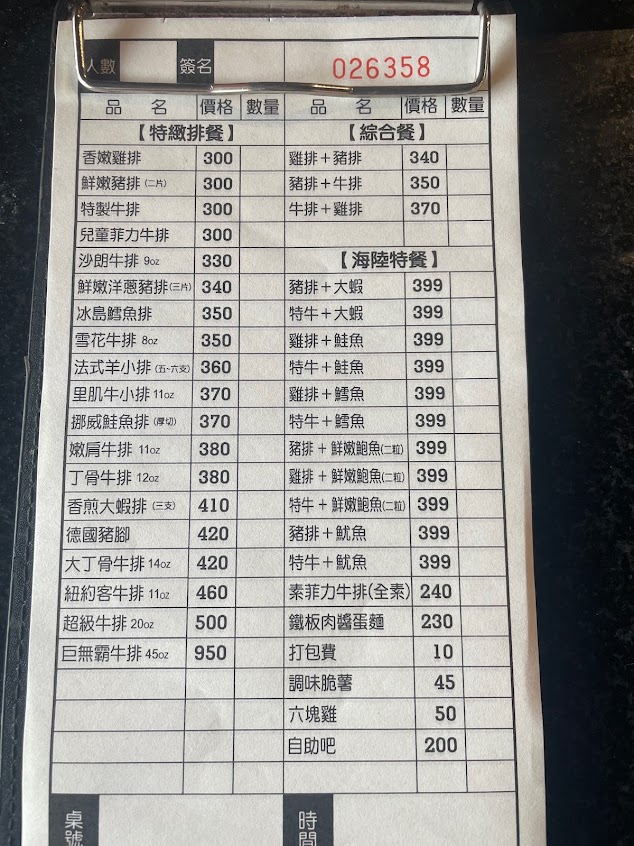 人數 簽名 026358
品 名 價格 數量 品 名 價格 數量
【特緻排餐】 【綜合餐】
香嫩雞排 300 雞排＋豬排 340
鮮嫩豬排(二片) 300 豬排＋牛排 350
特製牛排 300 牛排＋雞排 370
兒童菲力牛排 300
沙朗牛排 9oz 330 【海陸特餐】
鮮嫩洋蔥豬排(三片) 340 豬排＋大蝦 399
冰島鱈魚排 350 特牛＋大蝦 399
雪花牛排 8oz 350 雞排＋鮭魚 399
法式羊小排(五~六支) 360 特牛＋鮭魚 399
里肌牛小排 11oz 370 雞排＋鱈魚 399
挪威鮭魚排(厚切) 370 特牛＋鱈魚 399
嫩肩牛排 11oz 380 豬排＋鮮嫩鮑魚(二粒) 399
丁骨牛排 12oz 380 雞排＋鮮嫩鮑魚(二粒) 399
香煎大蝦排(三支) 410 特牛＋鮮嫩鮑魚(二粒) 399
德國豬腳 420 豬排＋魷魚 399
大丁骨牛排 14oz 420 特牛＋魷魚 399
紐約客牛排 11oz 460 素菲力牛排(全素) 240
超級牛排 20oz 500 鐵板肉醬蛋麵 230
巨無霸牛排 45oz 950 打包費 10
調味脆薯 45
六塊雞 50
自助吧 200
桌號 時間